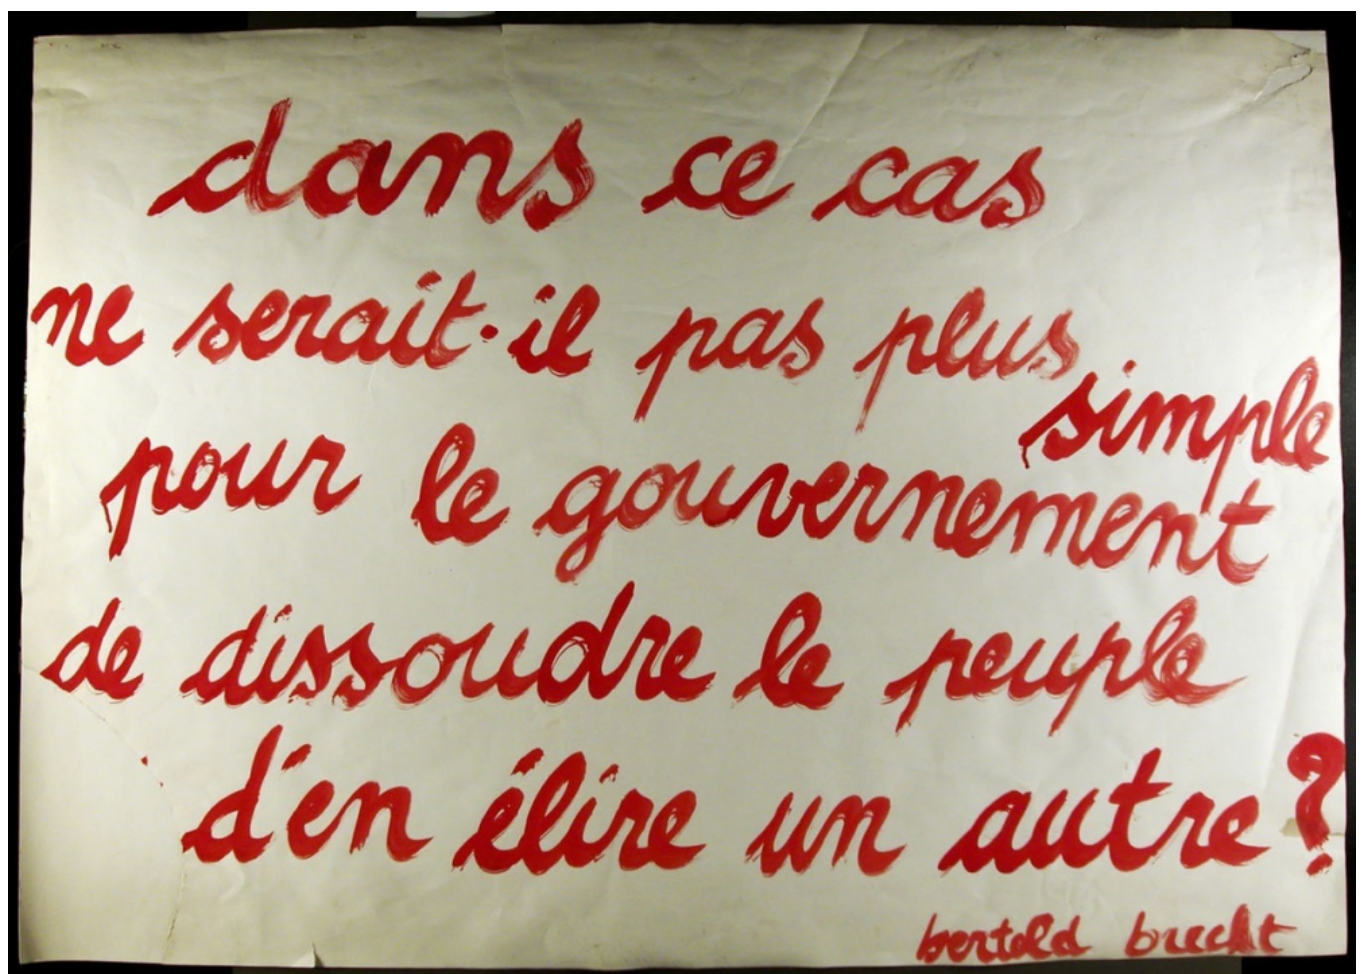 dans ce cas
ne serait-il pas plus
simple
pour le gouvernement
de dissoudre le peuple
d'en élire un autre ?
bertold brecht